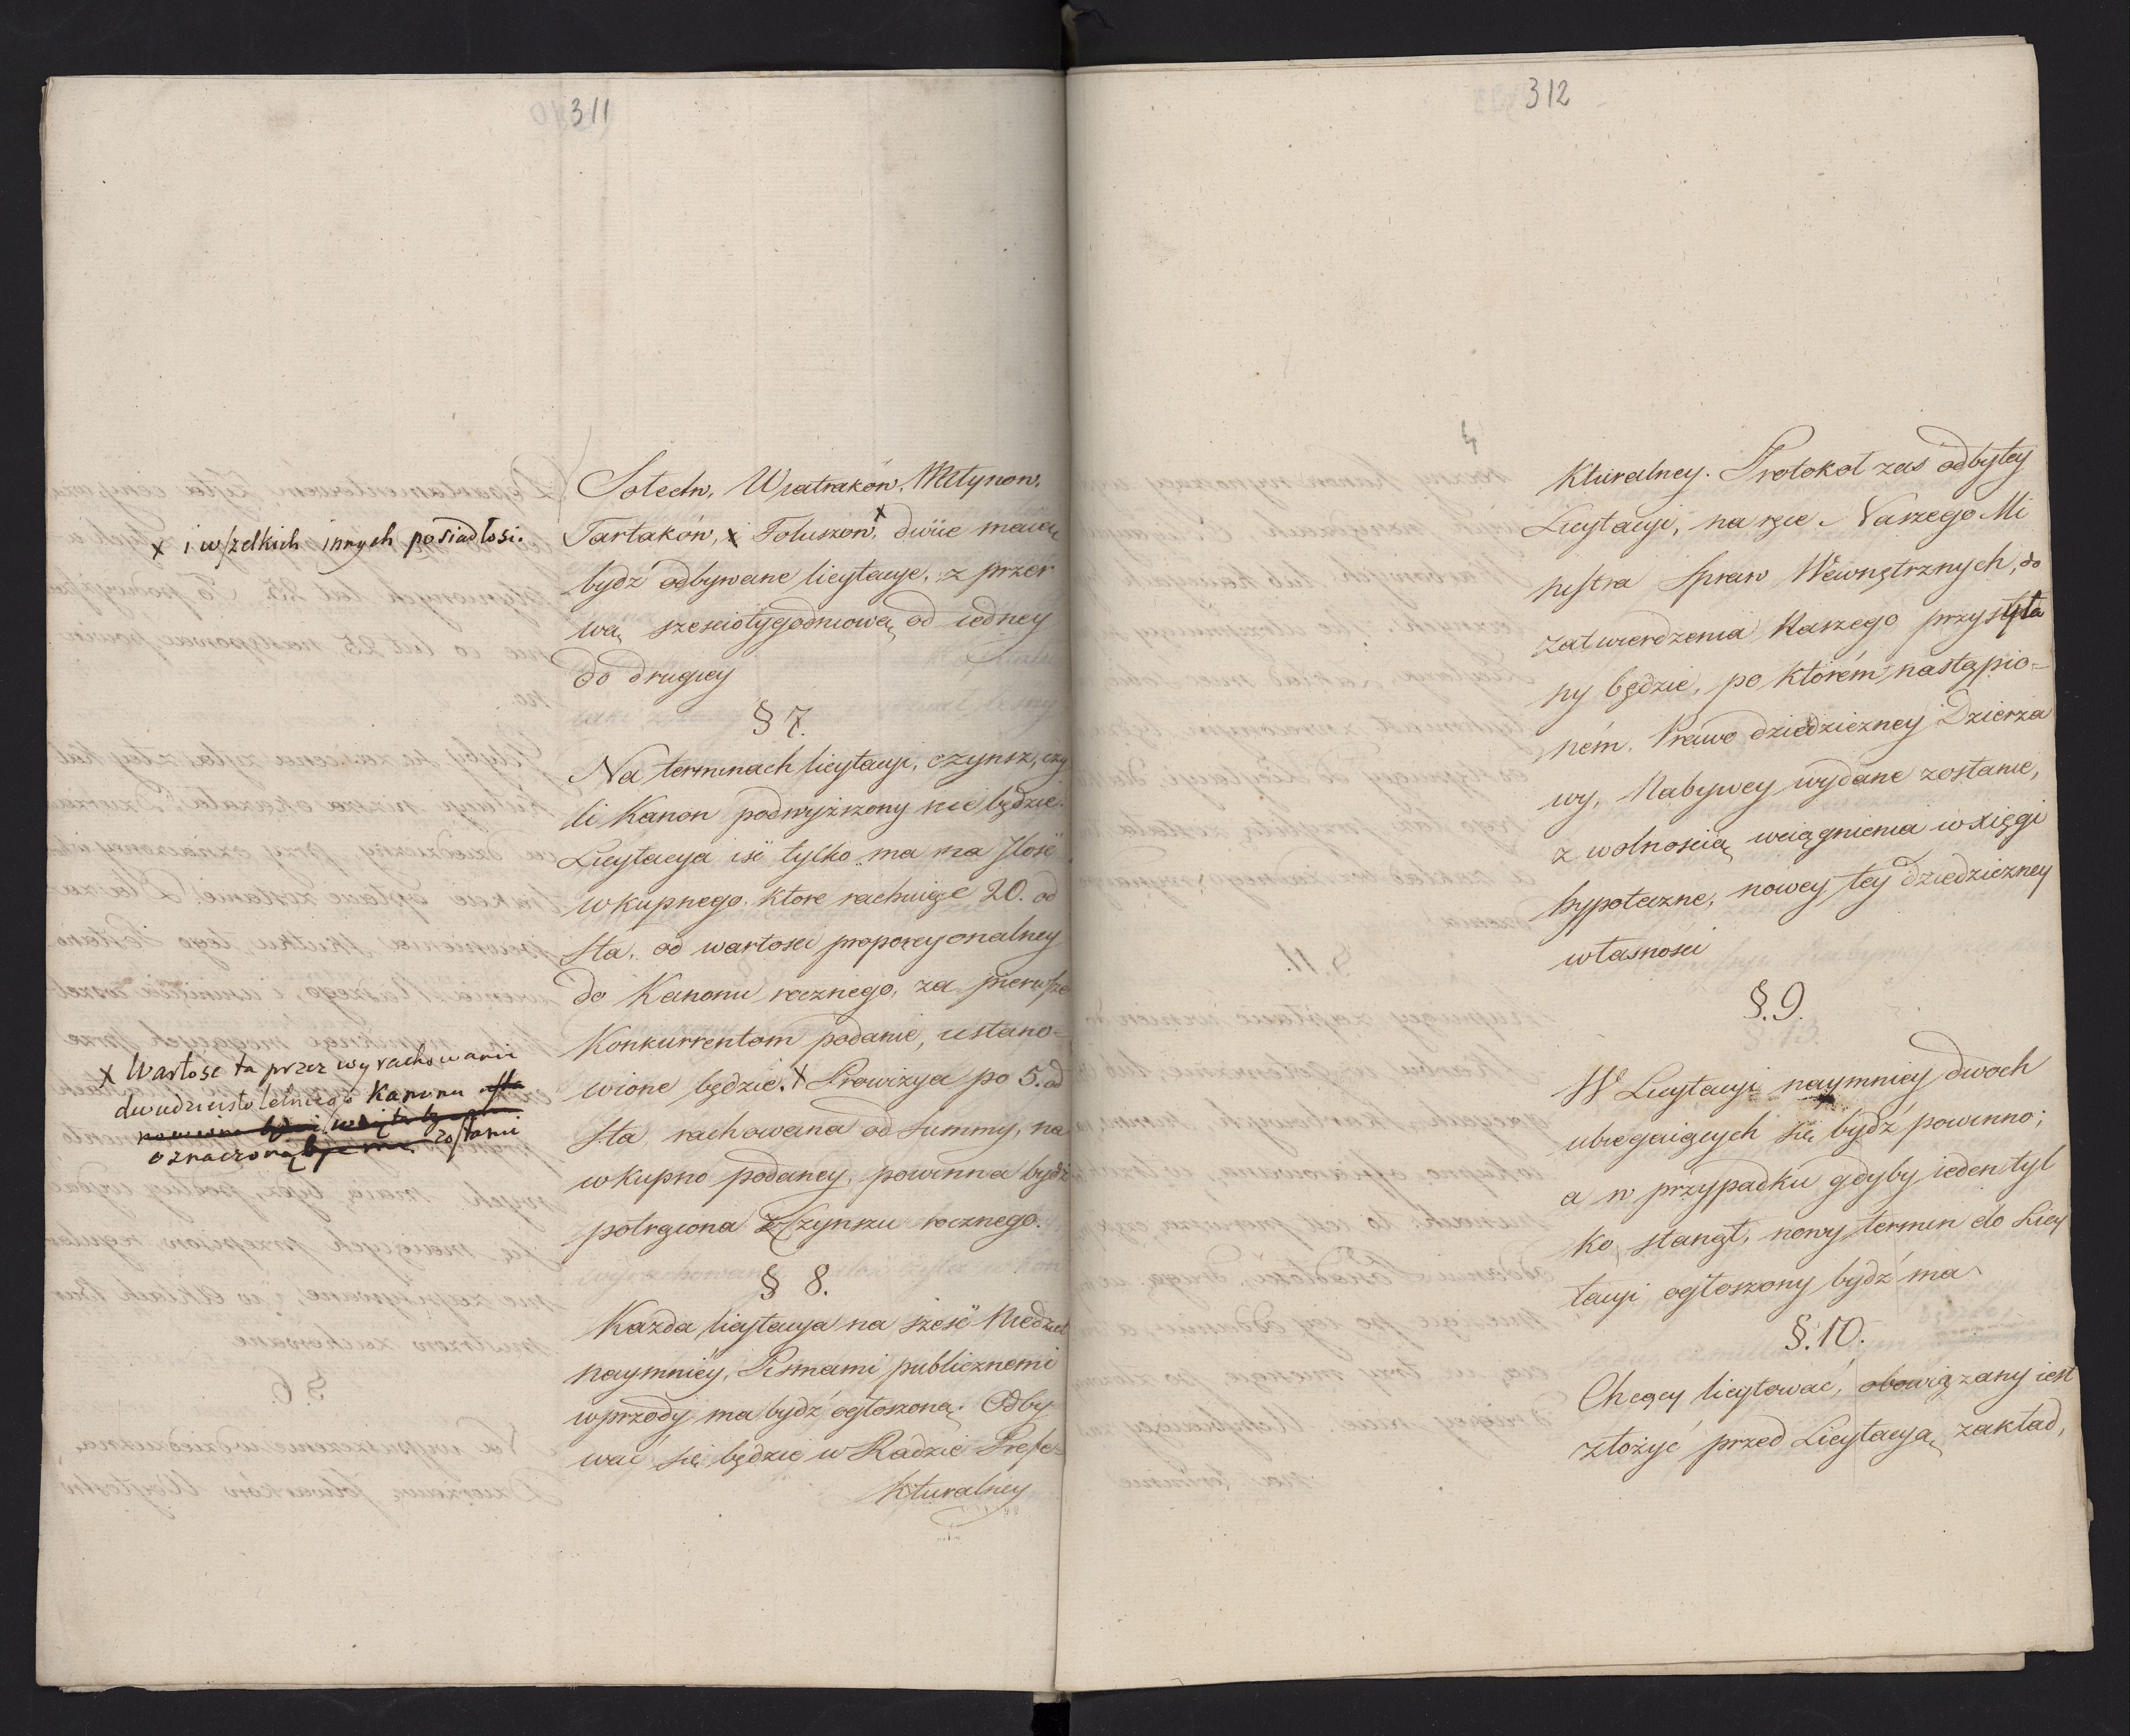 311
Sołectw, Wiatraków, Młynow,
Tartaków, x Foluszow, x dwie maią
x i wszelkich innych posiadłosi.
bydź odbywane licytacye, z przer
wą sześciotygodniową od iedney
do drugiey
§ 7.
Na terminach licytacyi, czynsz, czy
li Kanon podwyższony nie będzie.
Licytacya iść tylko ma na Jlość
wkupnego, ktore rachuiąc 20. od
sta, od wartości proporcyonalney
do Kanonu rocznego, za pierwsze
Konkurrentom podanie, ustano-
wione będzie. x Prowizya po 5. od
x Wartosc ta przez wyrachowanie
dwudziesto letniego Kanonu
oznaczoną zostanie
sta, rachowana od summy, na
wkupno podaney, powinna bydź
potrącona z Czynszu rocznego.
§ 8.
Każda licytacya na sześć Niedziel
naymniey, Pismami publicznemi
wprzódy ma bydź ogłoszoną. Odby
wać się będzie w Radzie Prefe-
kturalney
312
4
kturalney. Protokoł zas odbytey
Licytacyi, na ręce Naszego Mi
nistra Spraw Wewnętrznych, do
zatwierdzenia Naszego przysyła
ny będzie, po którém nastąpio-
ném, Prawo dziedziczney Dzierza
wy, Nabywcy wydane zostanie,
z wolnością wciągnienia w xięgi
hypoteczne, nowey tey dziedziczney
własności
§. 9.
W Licytacyi naymniey dwoch
ubiegaiących się bydź powinno;
a w przypadku gdyby ieden tyl
ko stanął, nowy termin do Licy
tacyi ogłoszony bydź ma
§. 10.
Chcący licytować, obowiązany iest
złożyć przed Licytacyą zakład,